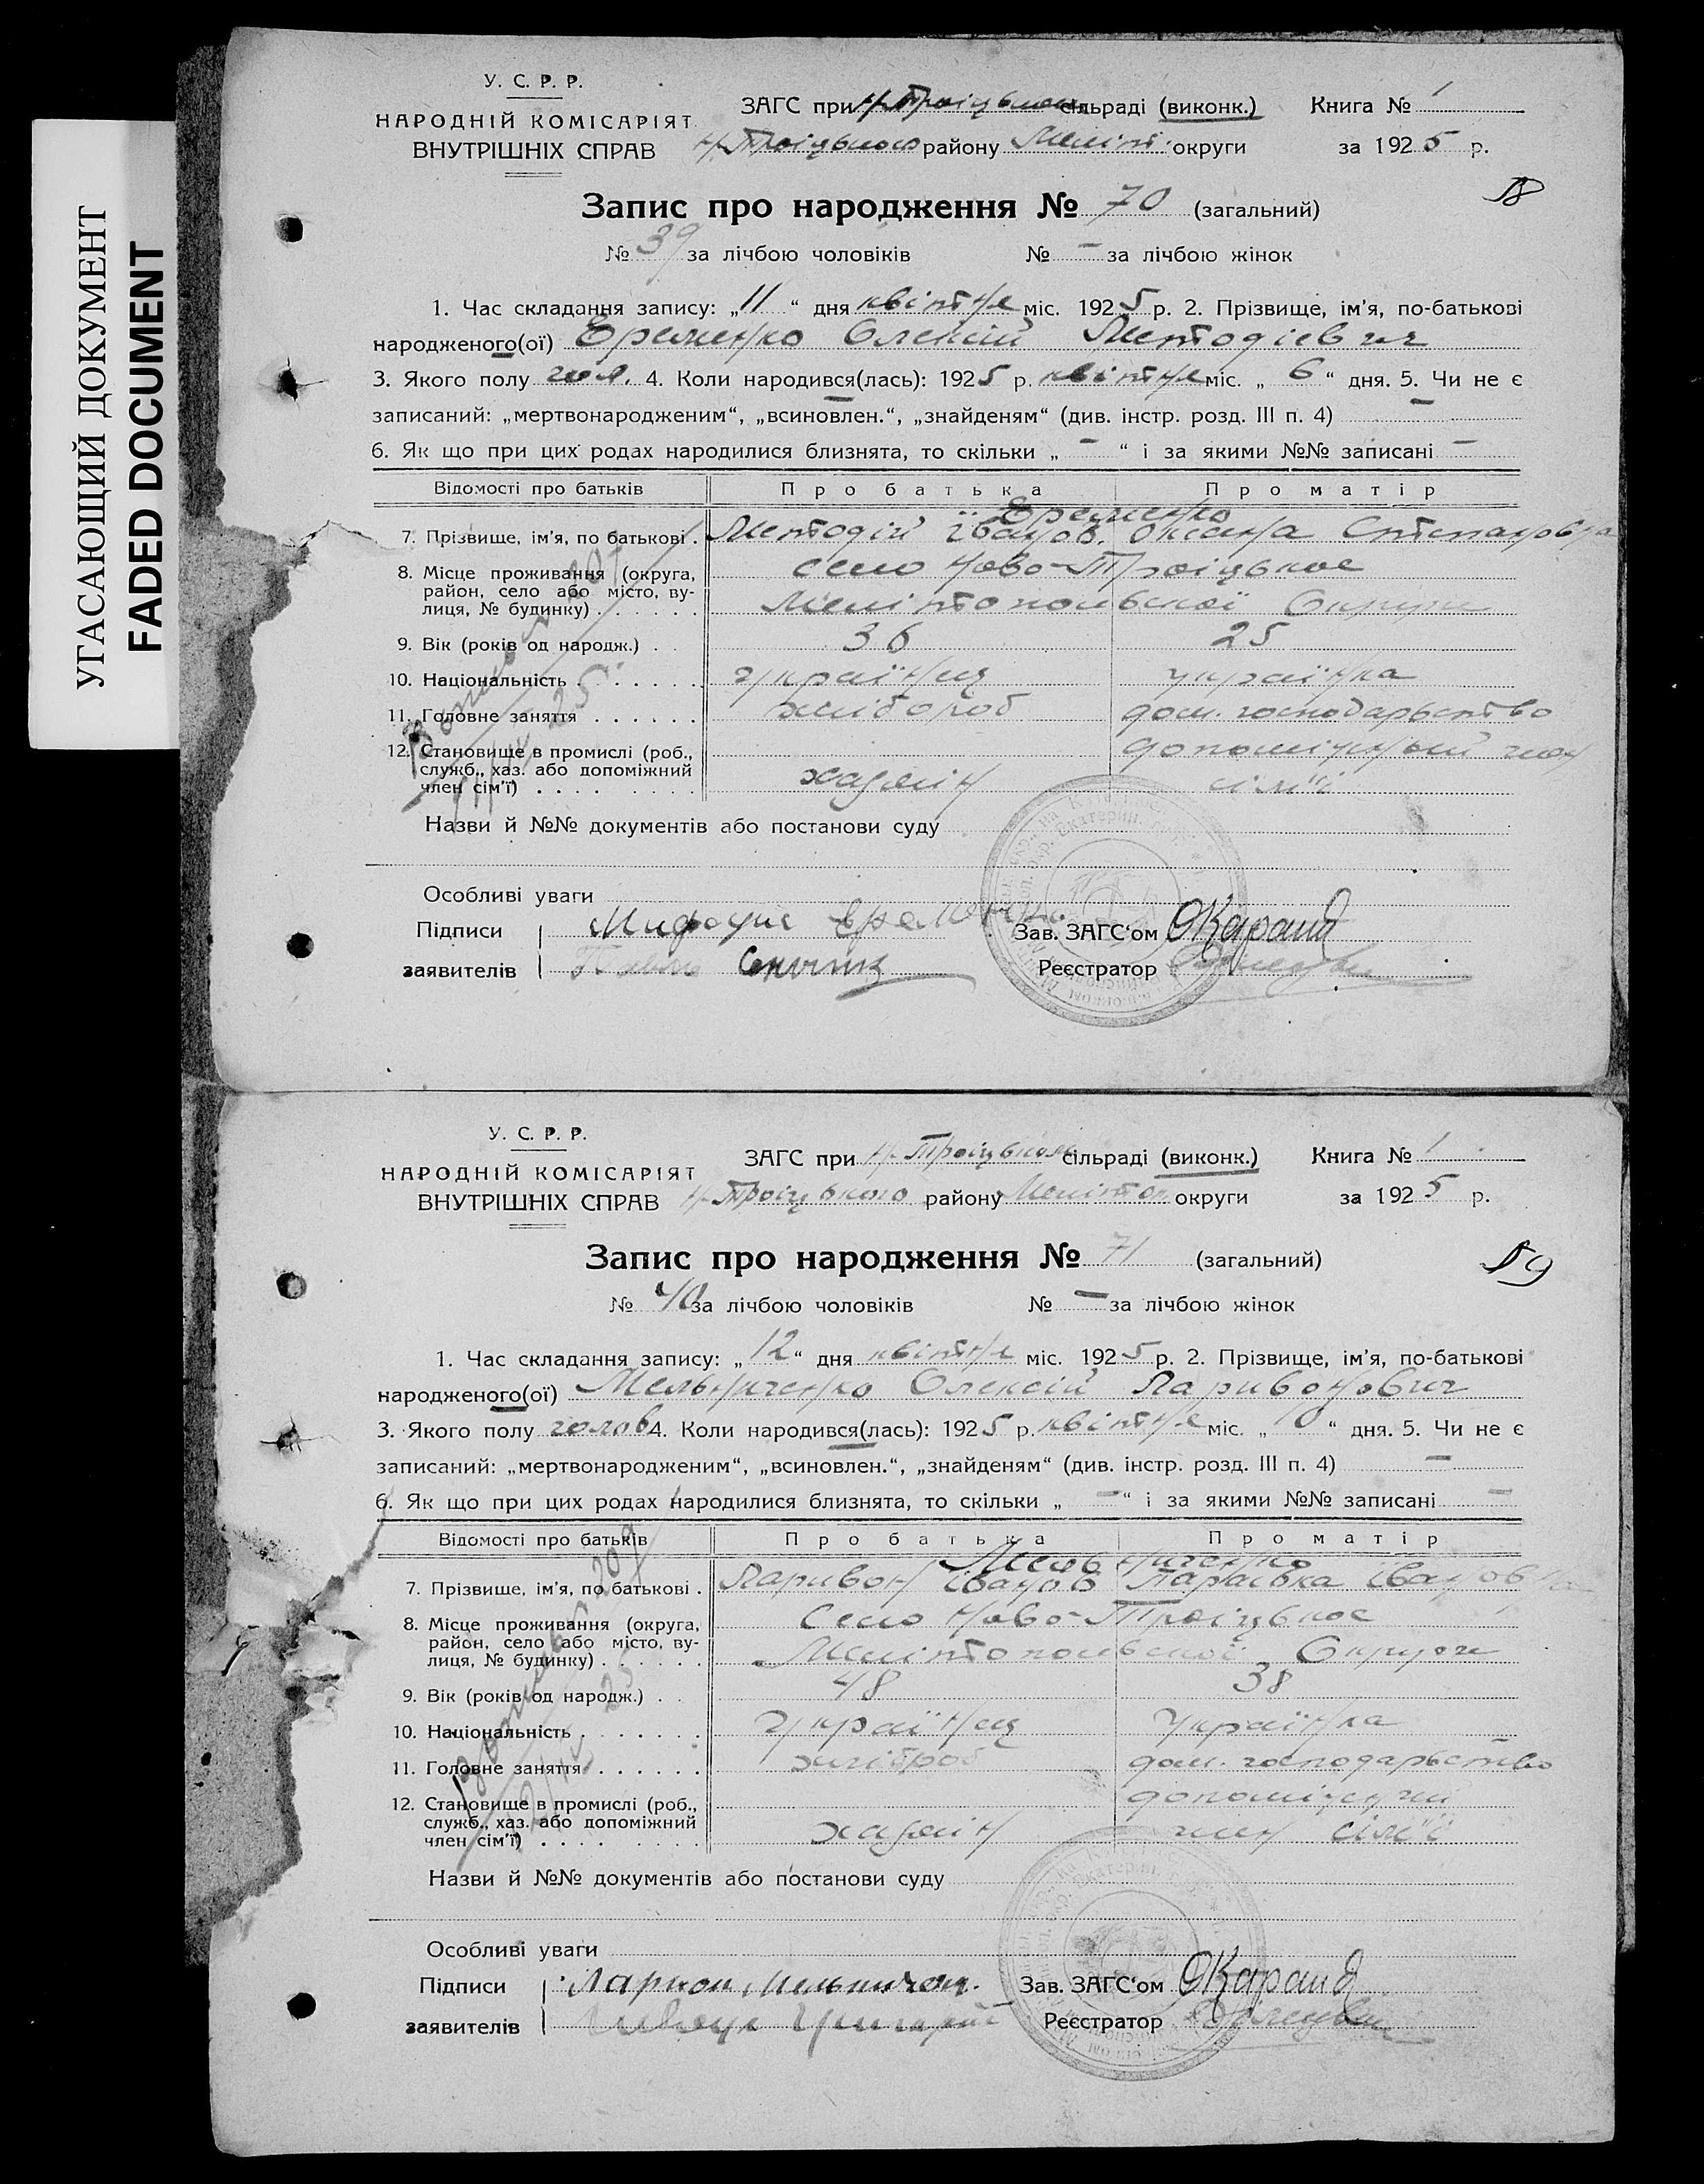 УГАСАЮЩИЙ ДОКУМЕНТ
FADED DOCUMENT
У. С. Р. Р.
НАРОДНІЙ КОМІСАРІЯТ
ВНУТРІШНІХ СПРАВ
ЗАГС при Н-Троіцьком сільраді (виконк.) Книга № 1
Н-Троіцького району Меліт. округи за 1925 р.
Запис про народження № 70 (загальний)
58
№ 39 за лічбою чоловіків № – за лічбою жінок
1. Час складання запису: „11“ дня квітня міс. 1925 р. 2. Прізвище, ім’я, по-батькові
народженого(ої) Еременко Олексій Методіевич
3. Якого полу чол. 4. Коли народився(лась): 1925 р. квітня міс. „6“ дня. 5. Чи не є
записаний: „мертвонародженим“, „всиновлен.“, „знайденям“ (див. інстр. розд. III п. 4) –
6. Як що при цих родах народилися близнята, то скільки „ – “ і за якими №№ записані –
Відомості про батьків Про батька Про матір
Еременко
7. Прізвище, ім’я, по батькові . Методій Іванов. Оксана Степановна
8. Місце проживання (округа, район, село або місто, вулиця, № будинку) село Ново-Троіцькое
Мелітопольскої Округи
9. Вік (років од народж.) . . 36 25
10. Національність українц українка
11. Головне заняття хлібороб дом. господарьство
12. Становище в промислі (роб., служб., хаз. або допоміжний член сім’ї) хазяін допоміжний член
сімʼї
Назви й №№ документів або постанови суду
Особливі уваги
Підписи Мифодие Еременко. Зав. ЗАГС‘ом
заявителів Реєстратор
У. С. Р. Р.
НАРОДНІЙ КОМІСАРІЯТ
ВНУТРІШНІХ СПРАВ
ЗАГС при Н-Троіцьком сільраді (виконк.) Книга № 1
Н-Троіцького району Мелітоп. округи за 1925 р.
Запис про народження № 71 (загальний)
59
№ 40 за лічбою чоловіків № – за лічбою жінок
1. Час складання запису: „12“ дня квітня міс. 1925 р. 2. Прізвище, ім’я, по-батькові
народженого(ої) Мельниченко Олексій Ларивонович
3. Якого полу чолов 4. Коли народився(лась): 1925 р. квітня міс. „10“ дня. 5. Чи не є
записаний: „мертвонародженим“, „всиновлен.“, „знайденям“ (див. інстр. розд. III п. 4) –
6. Як що при цих родах народилися близнята, то скільки „ – “ і за якими №№ записані –
Відомості про батьків Про батька Про матір
Мельниченко
7. Прізвище, ім’я, по батькові . Ларивон Іванов Параська Івановна
8. Місце проживання (округа, район, село або місто, вулиця, № будинку) Село Ново-Троіцькое
Мелітопольскої Округи
9. Вік (років од народж.) . . 48 38
10. Національність українц українка
11. Головне заняття хлібороб дом. господарьство
12. Становище в промислі (роб., служб., хаз. або допоміжний член сім’ї) хазяін допоміжний
член сімʼї
Назви й №№ документів або постанови суду
Особливі уваги
Підписи Зав. ЗАГС‘ом
заявителів Реєстратор